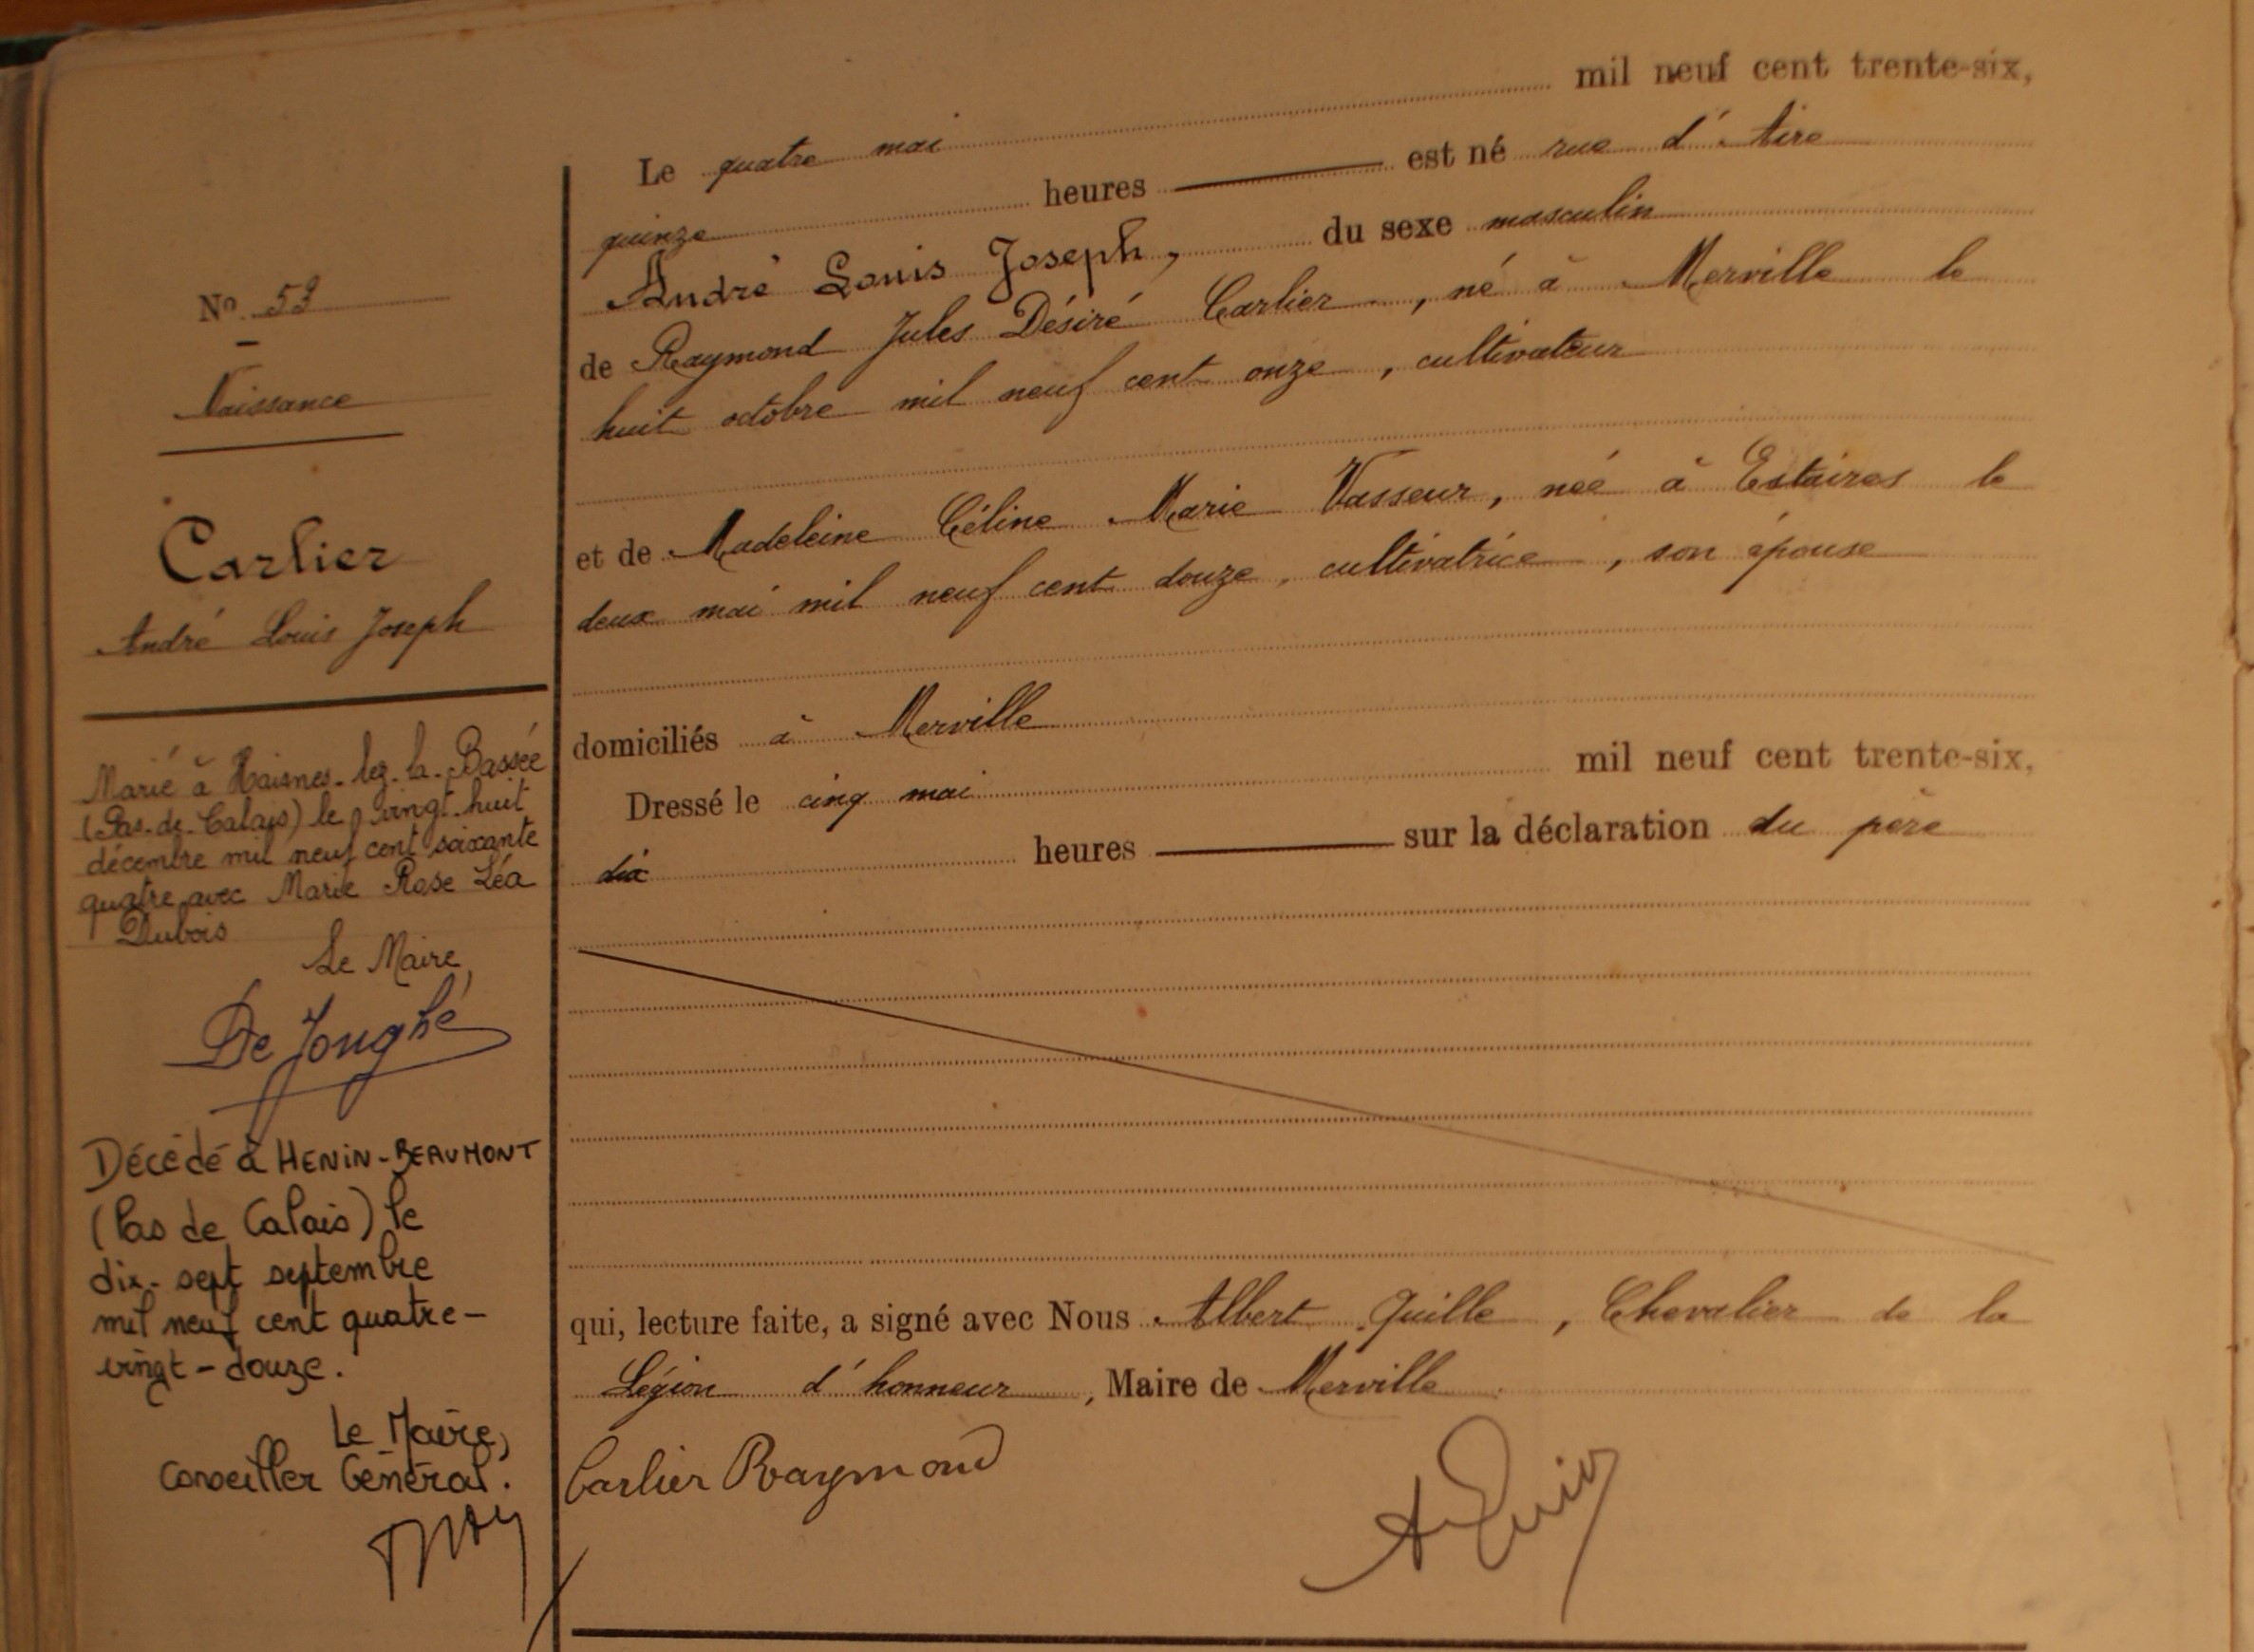 Nº 53
Naissance
Carlier
André Louis Joseph
Marié à Haisnes-lez-la-Bassée
(Pas-de-Calais) le vingt-huit
décembre mil neuf cent soixante
quatre avec Marie Rose Léa
Dubois
Le Maire,
De Jonghé
Décédé à HENIN-BEAUMONT
(Pas de Calais) le
dix-sept septembre
mil neuf cent quatre-
vingt-douze.
Le Maire,
Conseiller Général.
Le quatre mai mil neuf cent trente-six,
quinze heures est né rue d'Aire
André Louis Joseph, du sexe masculin
de Raymond Jules Désiré Carlier, né à Merville le
huit octobre mil neuf cent onze, cultivateur
et de Madeleine Céline Marie Vasseur, née à Estaires le
deux mai mil neuf cent douze, cultivatrice, son épouse
domiciliés à Merville
Dressé le cinq mai mil neuf cent trente-six,
dix heures sur la déclaration du père
qui, lecture faite, a signé avec Nous Albert Quille, Chevalier de la
Légion d'honneur, Maire de Merville
Carlier Raymond